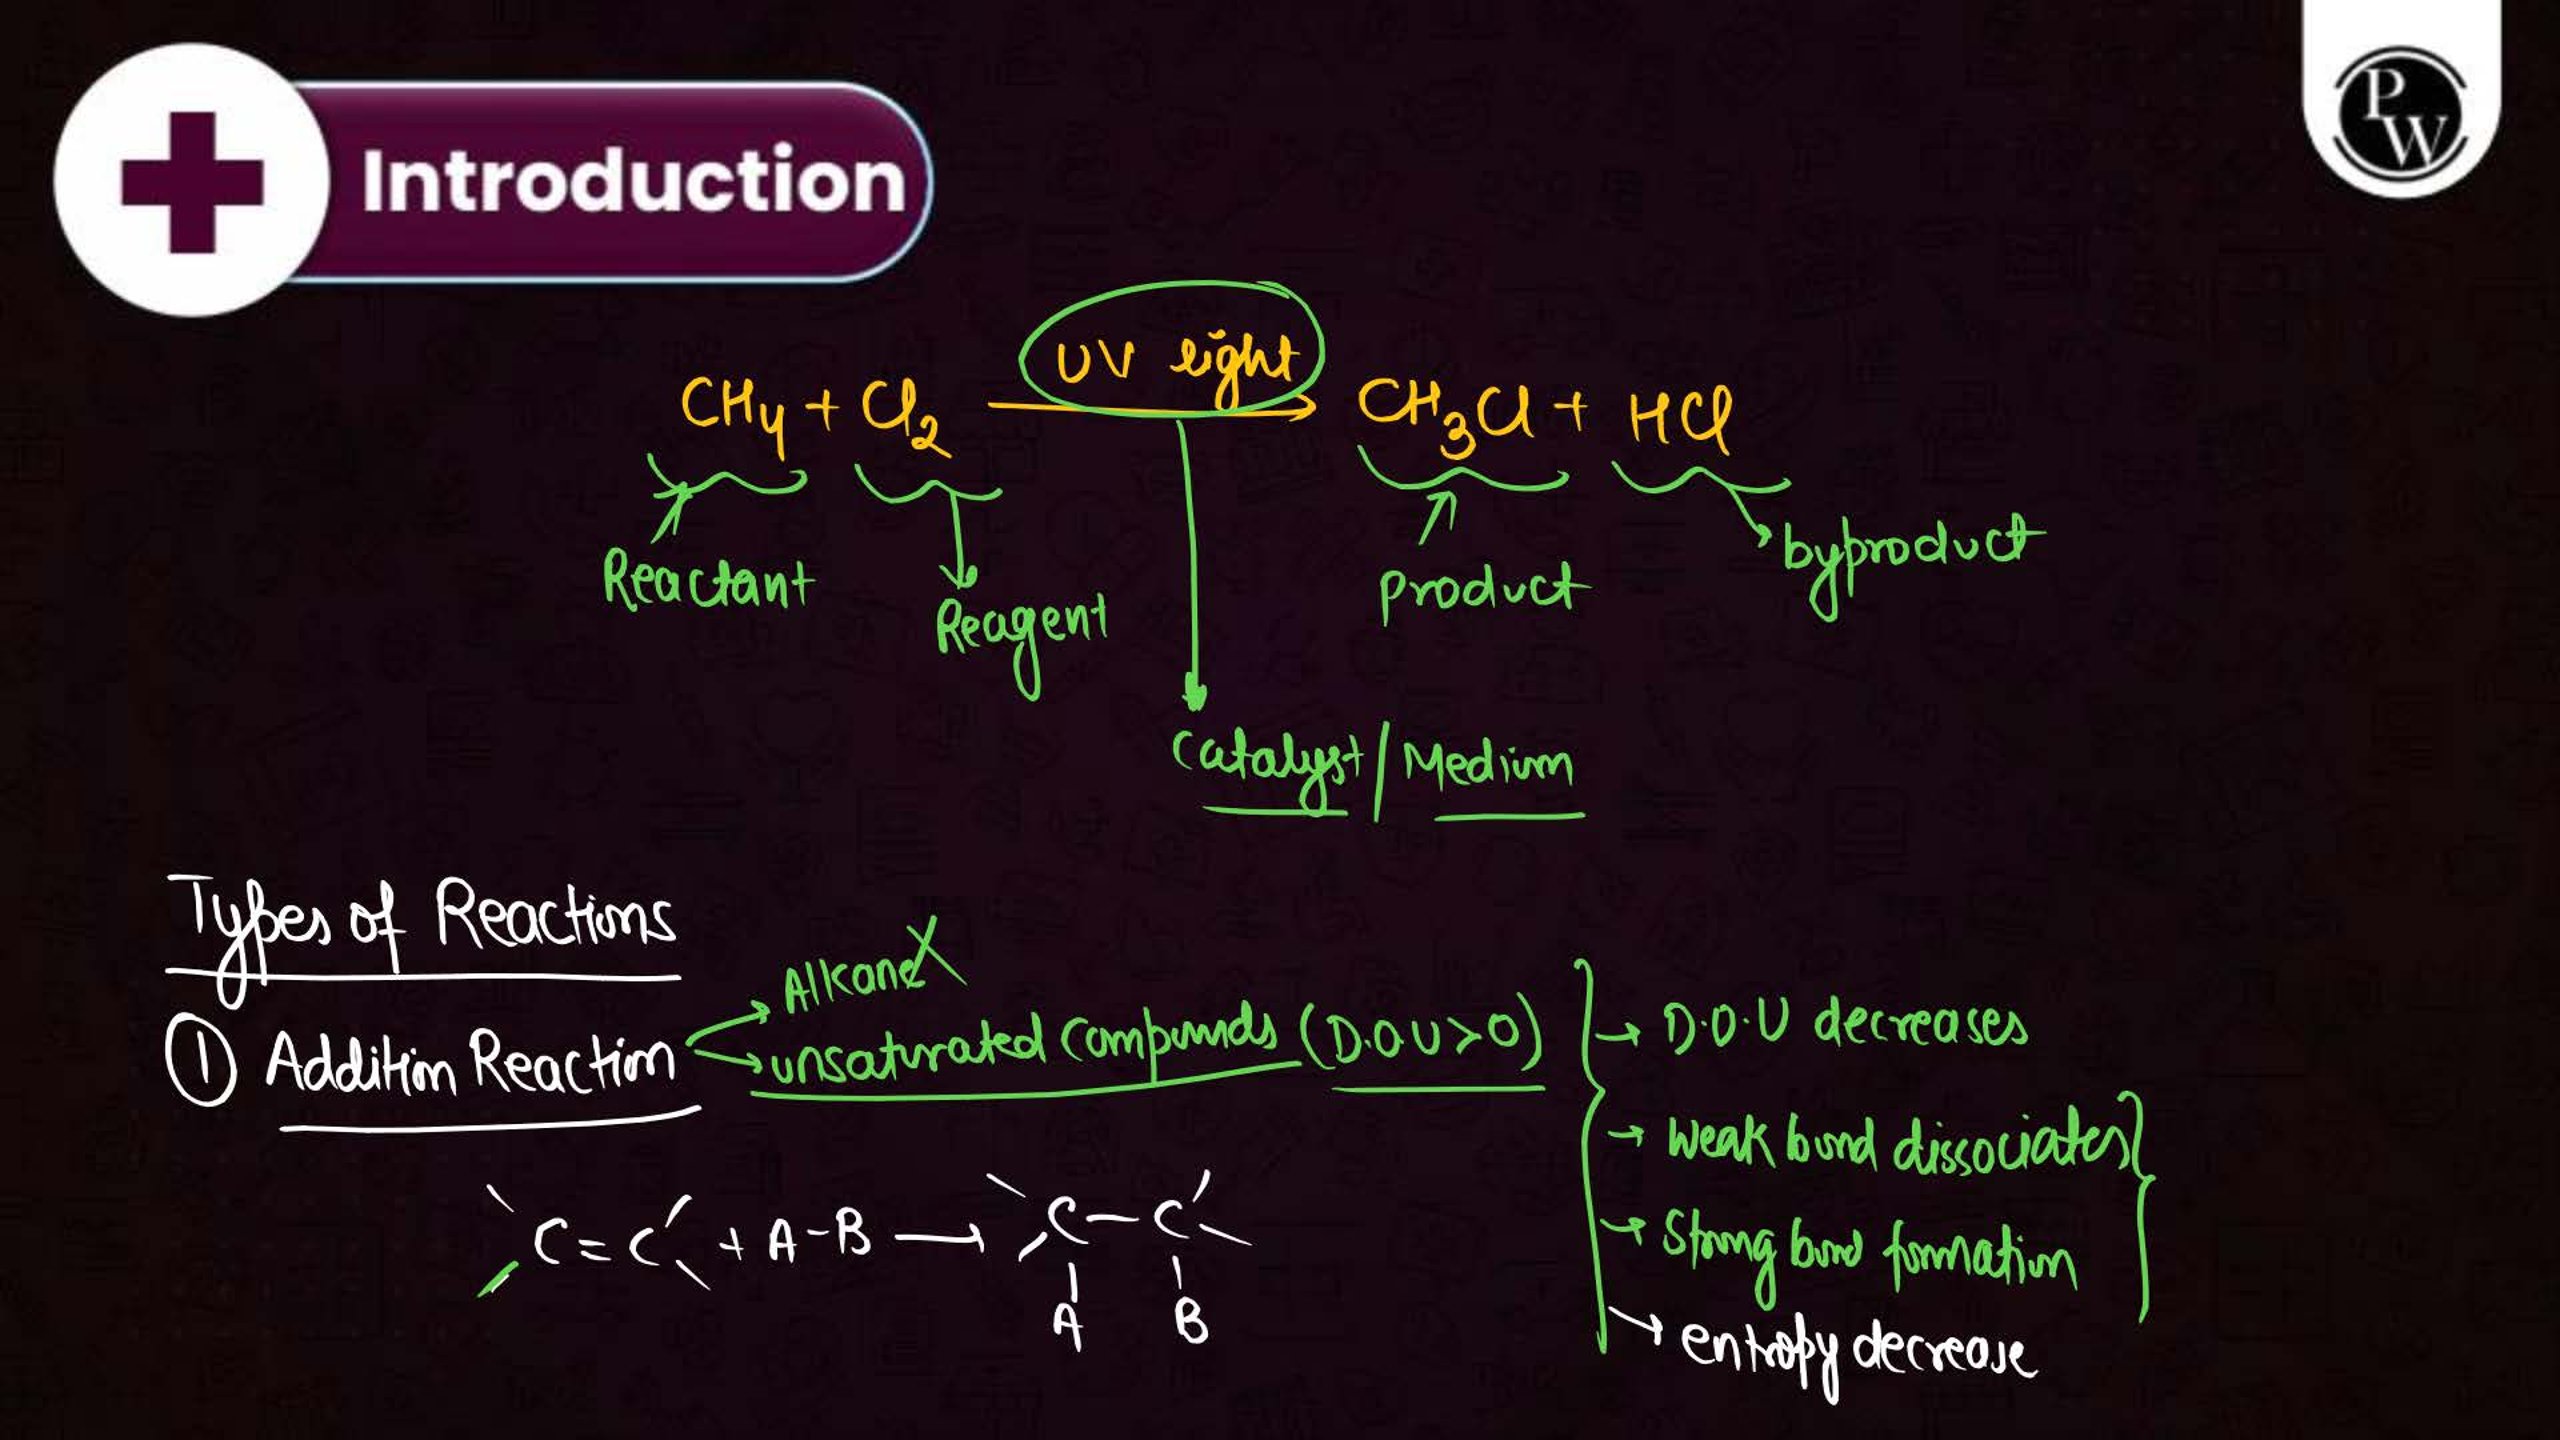 Introduction
PW
CH4 + Cl2 UV light → CH3Cl + HCl
Reactant
Reagent
product
byproduct
Catalyst / Medium
Types of Reactions
① Addition Reaction
Alkane X
unsaturated compounds (D.O.U > 0)
→ D.O.U decreases
→ Weak bond dissociates
→ Strong bond formation
→ entropy decrease
C = C + A-B → C - C
A B